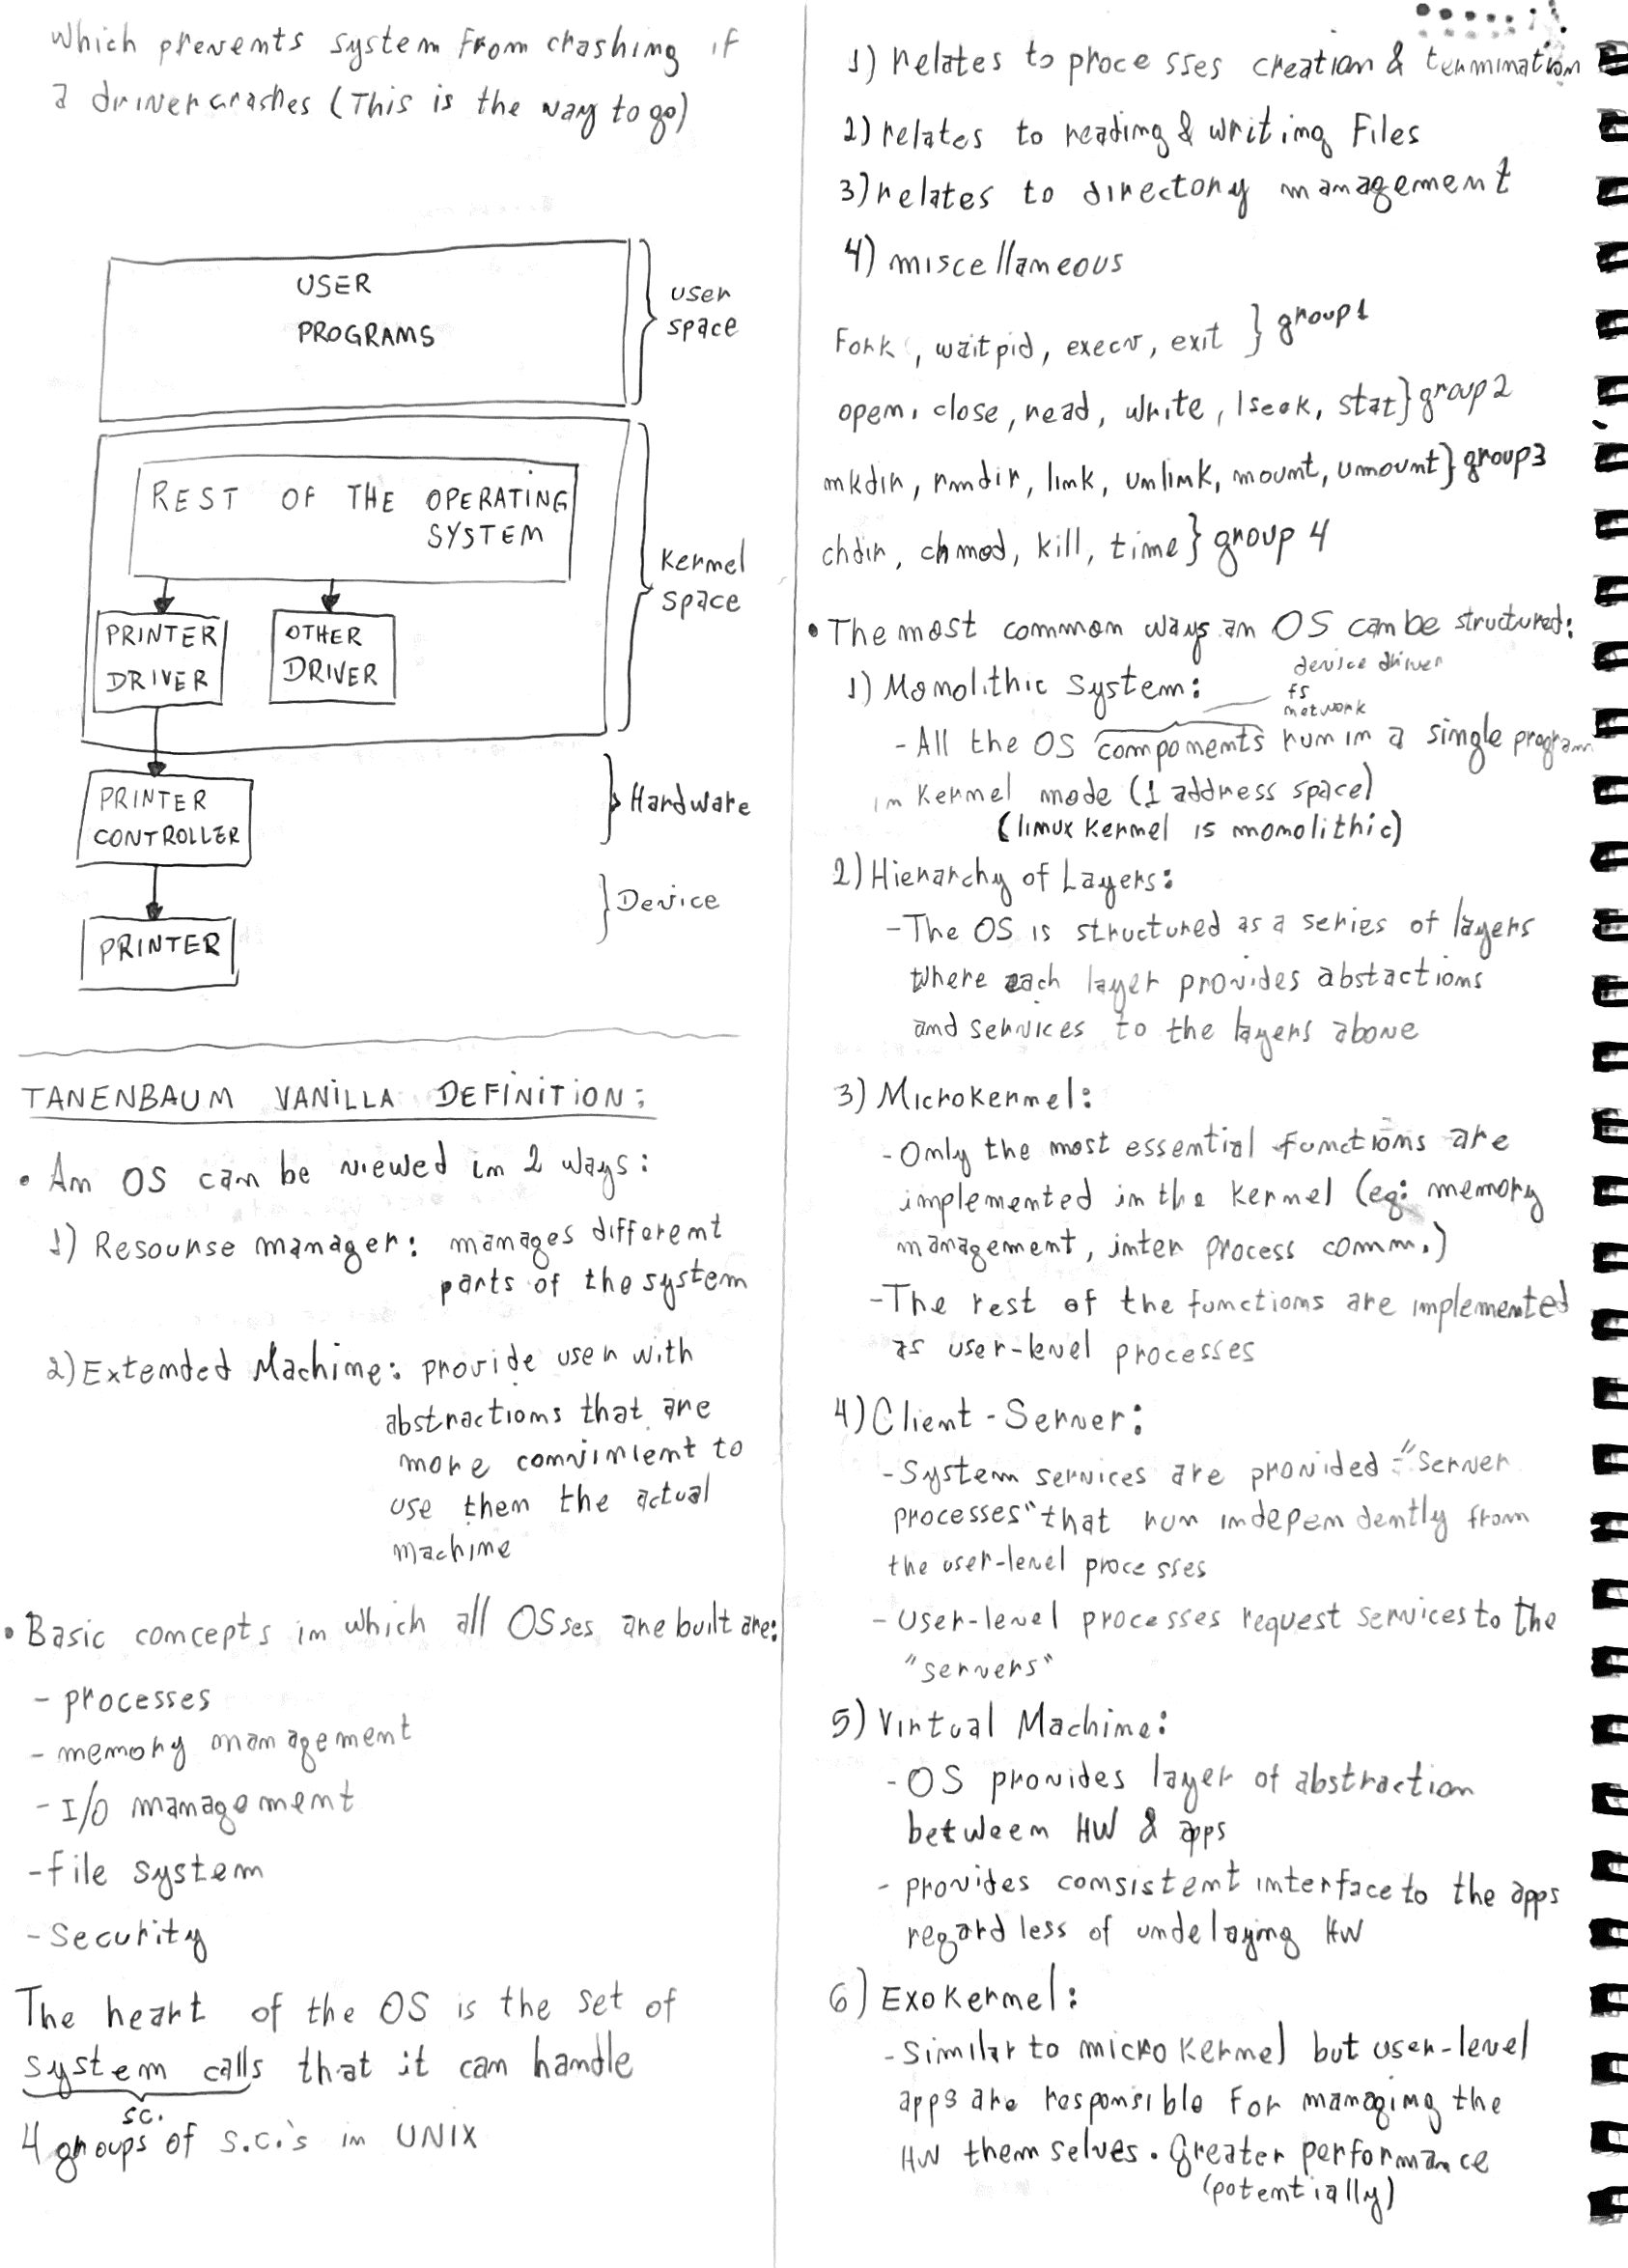 which prevents system from crashing if
a driver crashes (This is the way to go)
USER
PROGRAMS
user
space
REST OF THE OPERATING
SYSTEM
Kernel
space
PRINTER
DRIVER
OTHER
DRIVER
PRINTER
CONTROLLER
Hardware
Device
PRINTER
TANENBAUM VANILLA DEFINITION:
• An OS can be viewed in 2 ways:
1) Resourse manager: manages different
parts of the system
2) Extended Machine: provide user with
abstractions that are
more convinient to
use them the actual
machine
• Basic concepts in which all OSses are built are:
- processes
- memory management
- I/O management
- file system
- Security
The heart of the OS is the set of
system calls that it can handle
sc.
4 groups of s.c.'s in UNIX
1) relates to processes creation & termination
2) relates to reading & writing Files
3) relates to directory management
4) miscellaneous
Fork, waitpid, execv, exit } group 1
open, close, read, write, lseek, stat } group 2
mkdir, rmdir, link, unlink, mount, umount } group 3
chdir, chmod, kill, time } group 4
• The most common ways an OS can be structured:
device driver
1) Monolithic System:
fs
network
- All the OS components run in a single program
in Kernel mode (1 address space)
(linux Kernel is monolithic)
2) Hierarchy of Layers:
- The OS is structured as a series of layers
where each layer provides abstactions
and services to the layers above
3) Microkernel:
- Only the most essential functions are
implemented in the Kernel (eg: memory
management, inter process comm.)
- The rest of the functions are implemented
as user-level processes
4) Client - Server:
- System services are provided - "server
processes" that run independently from
the user-level processes
- User-level processes request services to the
"servers"
5) Virtual Machine:
- OS provides layer of abstraction
between HW & apps
- provides consistent interface to the apps
regardless of undelaying HW
6) Exokernel:
- Similar to micro Kernel but user-level
apps are responsible for managing the
HW themselves. Greater performance
(potentially)